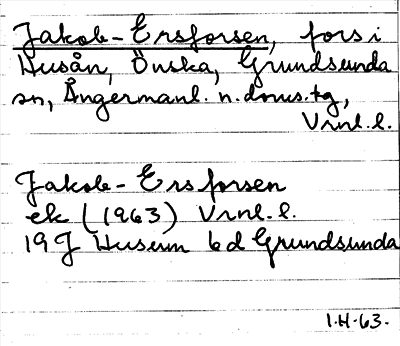 Jakob-Ersforsen, fors i
Husån, Önska, Grundsunda
sn, Ångermanl. n. doms.tg,
Vrnl. l.
Jakob-Ersforsen
ek (1963) Vrnl. l.
19J Husum bd Grundsunda
I.H.63.